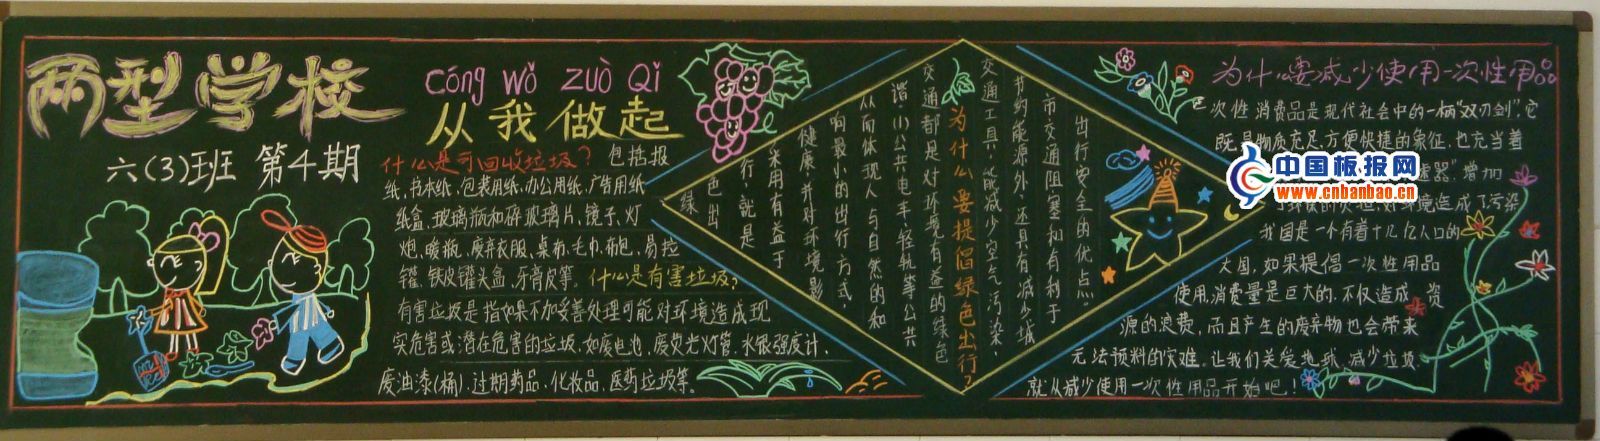 两型学校
六(3)班 第4期
cóng wǒ zuò qǐ
从我做起
什么是可回收垃圾? 包括报
纸,书本纸,包装用纸,办公用纸,广告用纸
纸盒,玻璃瓶和碎玻璃片,镜子,灯
炮,暖瓶,废弃衣服,桌布,毛巾,布包,易拉
罐,铁皮罐头盒,牙膏皮等。什么是有害垃圾?
有害垃圾是指如果不加妥善处理可能对环境造成现
实危害或潜在危害的垃圾,如废电池,废荧光灯管,水银温度计,
废油漆(桶),过期药品、化妆品,医药垃圾等。
为什么要提倡绿色出行?
绿
色出
行,就是
采用有益于
健康,并对环境影
响最小的出行方式,
从而体现人与自然的和
谐(1)公共电车、轻轨等公共
交通都是对环境有益的绿色
交通工具,能减少空气污染,
节约能源外,还具有减少城
市交通阻塞和有利于
出行安全的优点。
为什么要减少使用一次性用品
次性消费品是现代社会中的一柄"双刃剑",它
既是物质充足、方便快捷的象征,也充当着
速器",增加
了环保的负担,对环境造成了污染
我国是一个有着十几亿人口的
大国,如果提倡一次性用品
使用,消费量是巨大的,不仅造成资
源的浪费,而且产生的废弃物也会带来
无法预料的灾难,让我们关爱地球,减少垃圾
就从减少使用一次性用品开始吧!
中国板报网
www.cnbanbao.cn